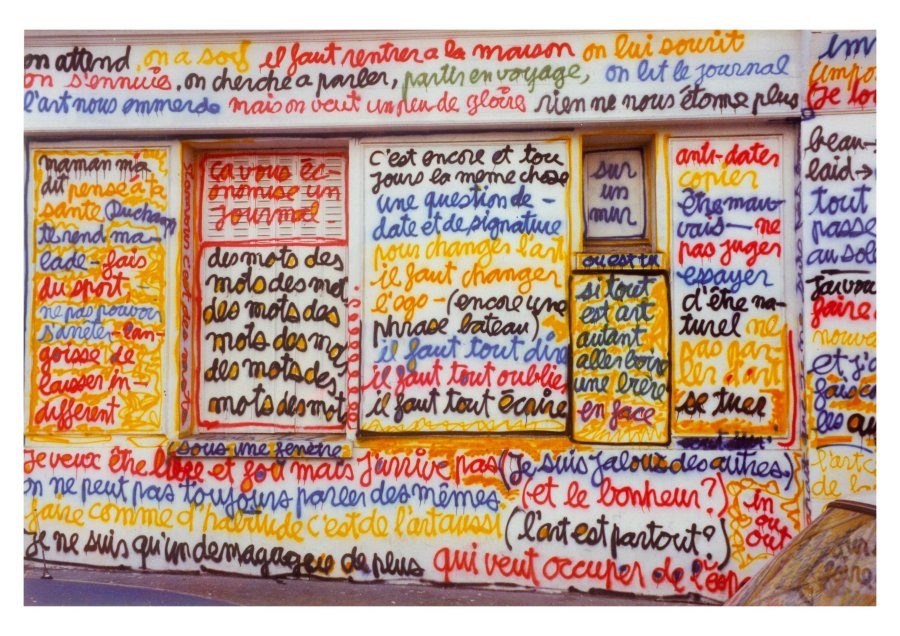 on attend on a soif il faut rentrer a la maison on lui sourit
on s'ennuies, on cherche a parler, partir en voyage, on lit le journal
l'art nous emmerde mais on veut un peu de gloire rien ne nous étonne plus
maman m'a
dit pense à ta
santé Duchamp
te rend ma-
lade - fais
du sport -
ne pas pouvoir
s'arreter - l'an-
goisse de
laisser in-
différent
ça vous éc-
onomise un
journal
des mots des
mots des mot
des mots des
mots des mo
des mots des
mots des mot
C'est encore et tou
jours la meme chose
une question de -
date et de signature
pour changer l'art
il faut changer
l'ego - (encore une
phrase bateau)
il faut tout dire
il faut tout oublie
il faut tout écrire
sur
un
mur
ou es tu
si tout
est art
autant
aller boire
une bière
en face
anti-dater
copier
être mau-
vais - ne
pas juger
essayer
d'être na-
turel ne
pas par-
ler d'art
se tuer
beau→
laid→
tout
passe
au sol
j'avou
faire
nouve
et j'a
fais c
les au
l'art c
de l
sous une fenetre
je veux être libre et fou mais j'arrive pas (je suis jaloux des autres.)
on ne peut pas toujours parler des mêmes (et le bonheur?)
faire comme d'habitude c'est de l'art aussi (l'art est partout?)
je ne suis qu'un demagogue de plus qui veut occuper de l'esp
in
ou
out